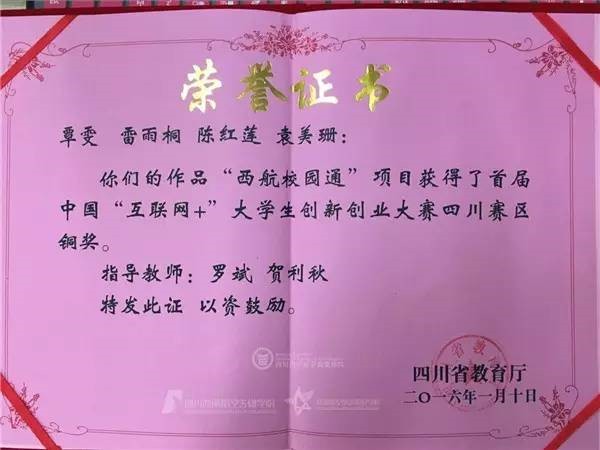 荣誉证书
覃雯 雷雨桐 陈红莲 袁美珊：
你们的作品“西航校园通”项目获得了首届
中国“互联网+”大学生创新创业大赛四川赛区
铜奖。
指导教师：罗斌 贺利秋
特发此证 以资鼓励。
四川省教育厅
二〇一六年一月十日